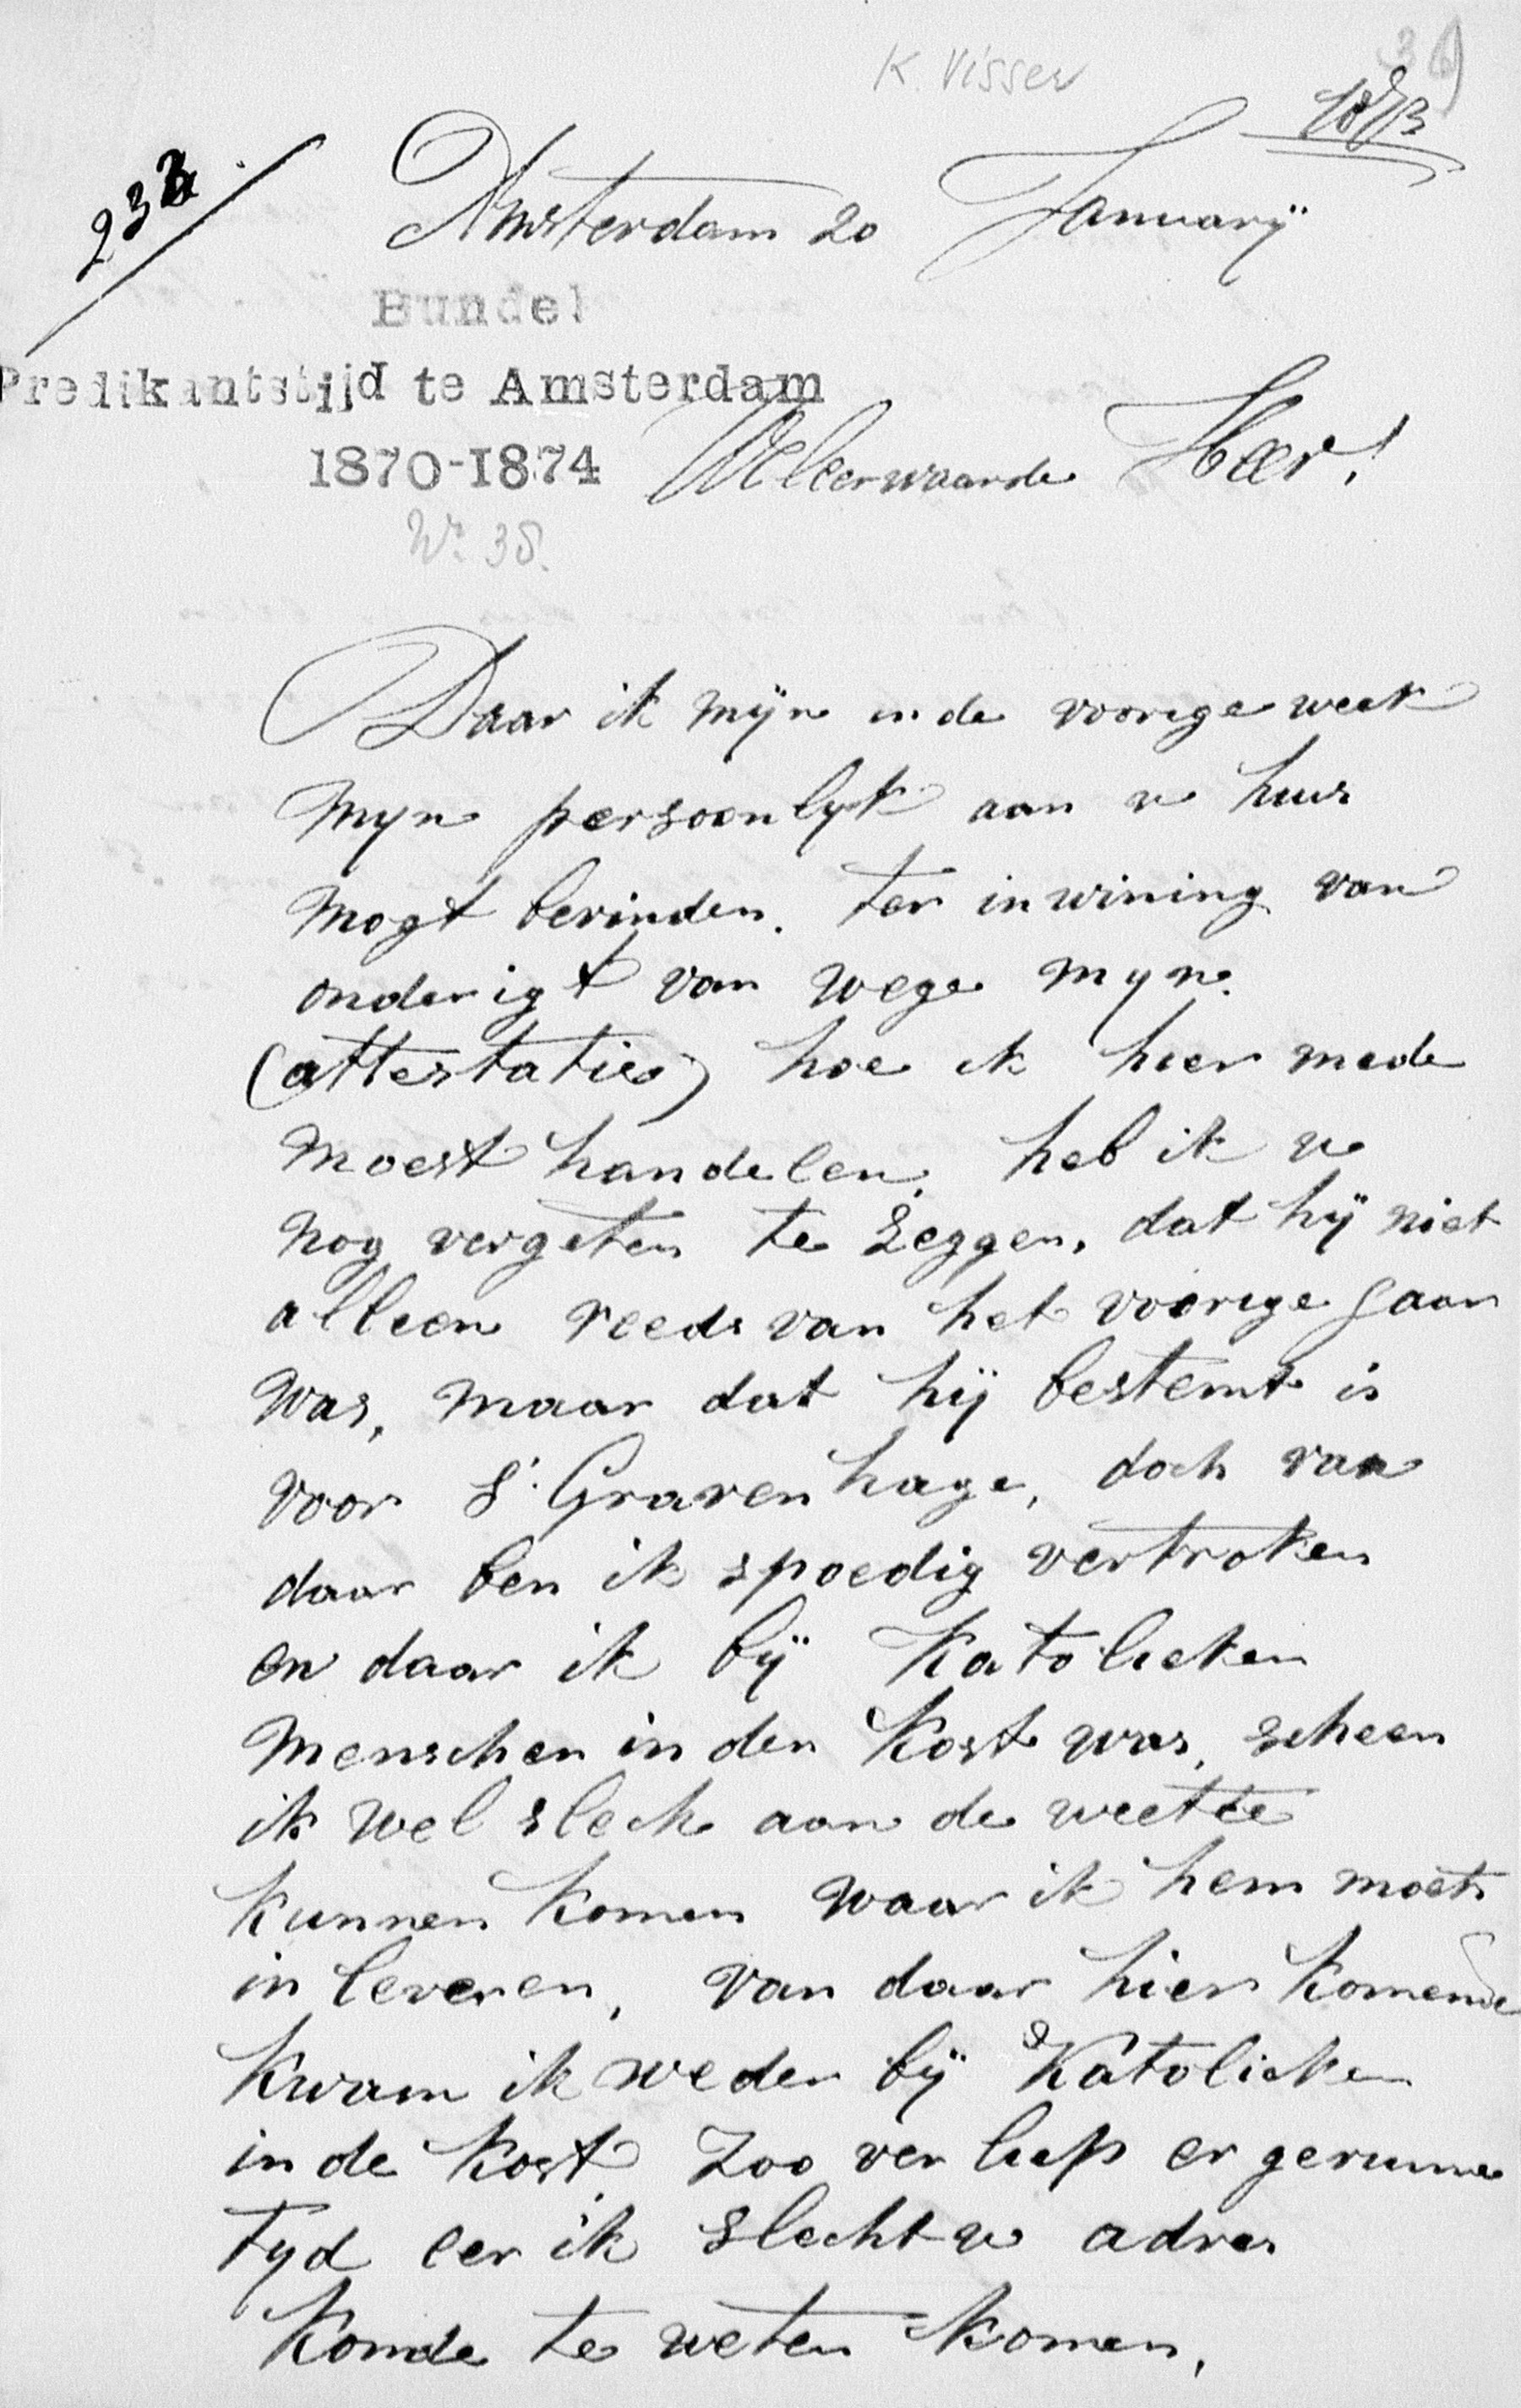 K. Visser
1873
233.
Amsterdam 20 Januarij
Bundel
Predikantstijd te Amsterdam
1870-1874
WelEerwaarde Heer!
No. 38.
Daar ik mijn in de voorige week
myn persoonlyk aan u huis
mogt bevinden. ter inwining van
onderigt van wege myn
(attestatie) hoe ik hier mede
moest handelen, heb ik u
nog vergeten te Zeggen, dat hij niet
alleen reeds van het voorige Jaar
was, maar dat hij bestemt is
voor S' Gravenhage, doch van
daar ben ik spoedig vertroken
en daar ik bij Katolieken
menschen in den Kost was, scheen
ik wel slech aan de weet te
Kunnen Komen waar ik hem moets
in leveren, van daar hier Komende
Kwam ik weder bij Katolieken
in de Kost Zoo verliep er geruime
tyd eer ik slecht u adres
Konde te weten Komen,